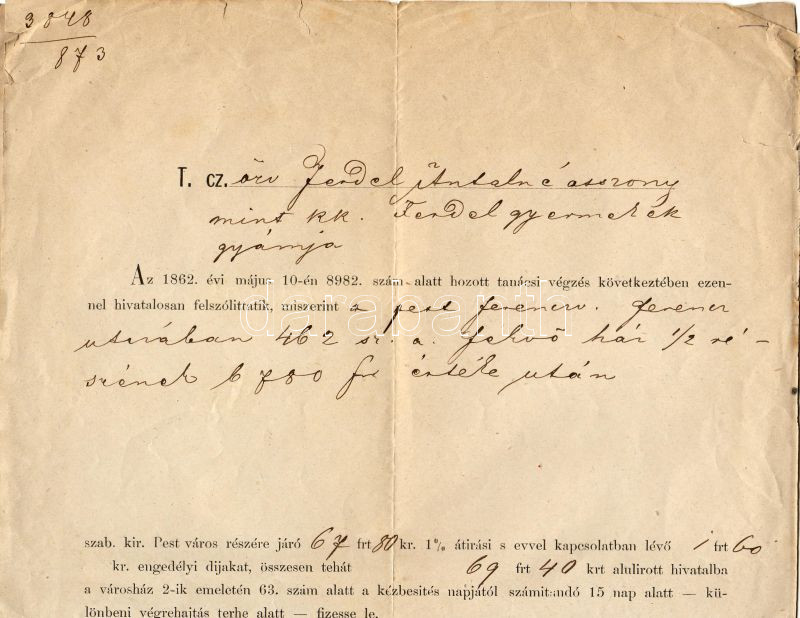 3848
873
T. cz. özv Ferdel Antalné asszony
mint kk. Ferdel gyermekek
gyámja
Az 1862. évi május 10-én 8982. szám alatt hozott tanácsi végzés következtében ezen-
nel hivatalosan felszólittatik, miszerint a pest ferencv. ferencz
utczában 462 sz. a. fekvő ház 1/2 ré-
szének 6780 frt értéke után
szab. kir. Pest város részére járó 67 frt 80 kr. 1% átirási s evvel kapcsolatban lévő 1 frt 60
kr. engedélyi dijakat, összesen tehát 69 frt 40 krt alulirott hivatalba
a városház 2-ik emeletén 63. szám alatt a kézbesités napjától számitandó 15 nap alatt — kü-
lönbeni végrehajtás terhe alatt — fizesse le.
darabanth